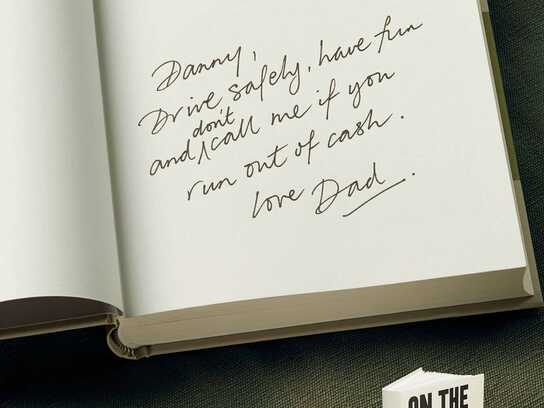 Danny,
Drive safely, have fun
don't
and ^ call me if you
run out of cash.
love Dad.
ON THE